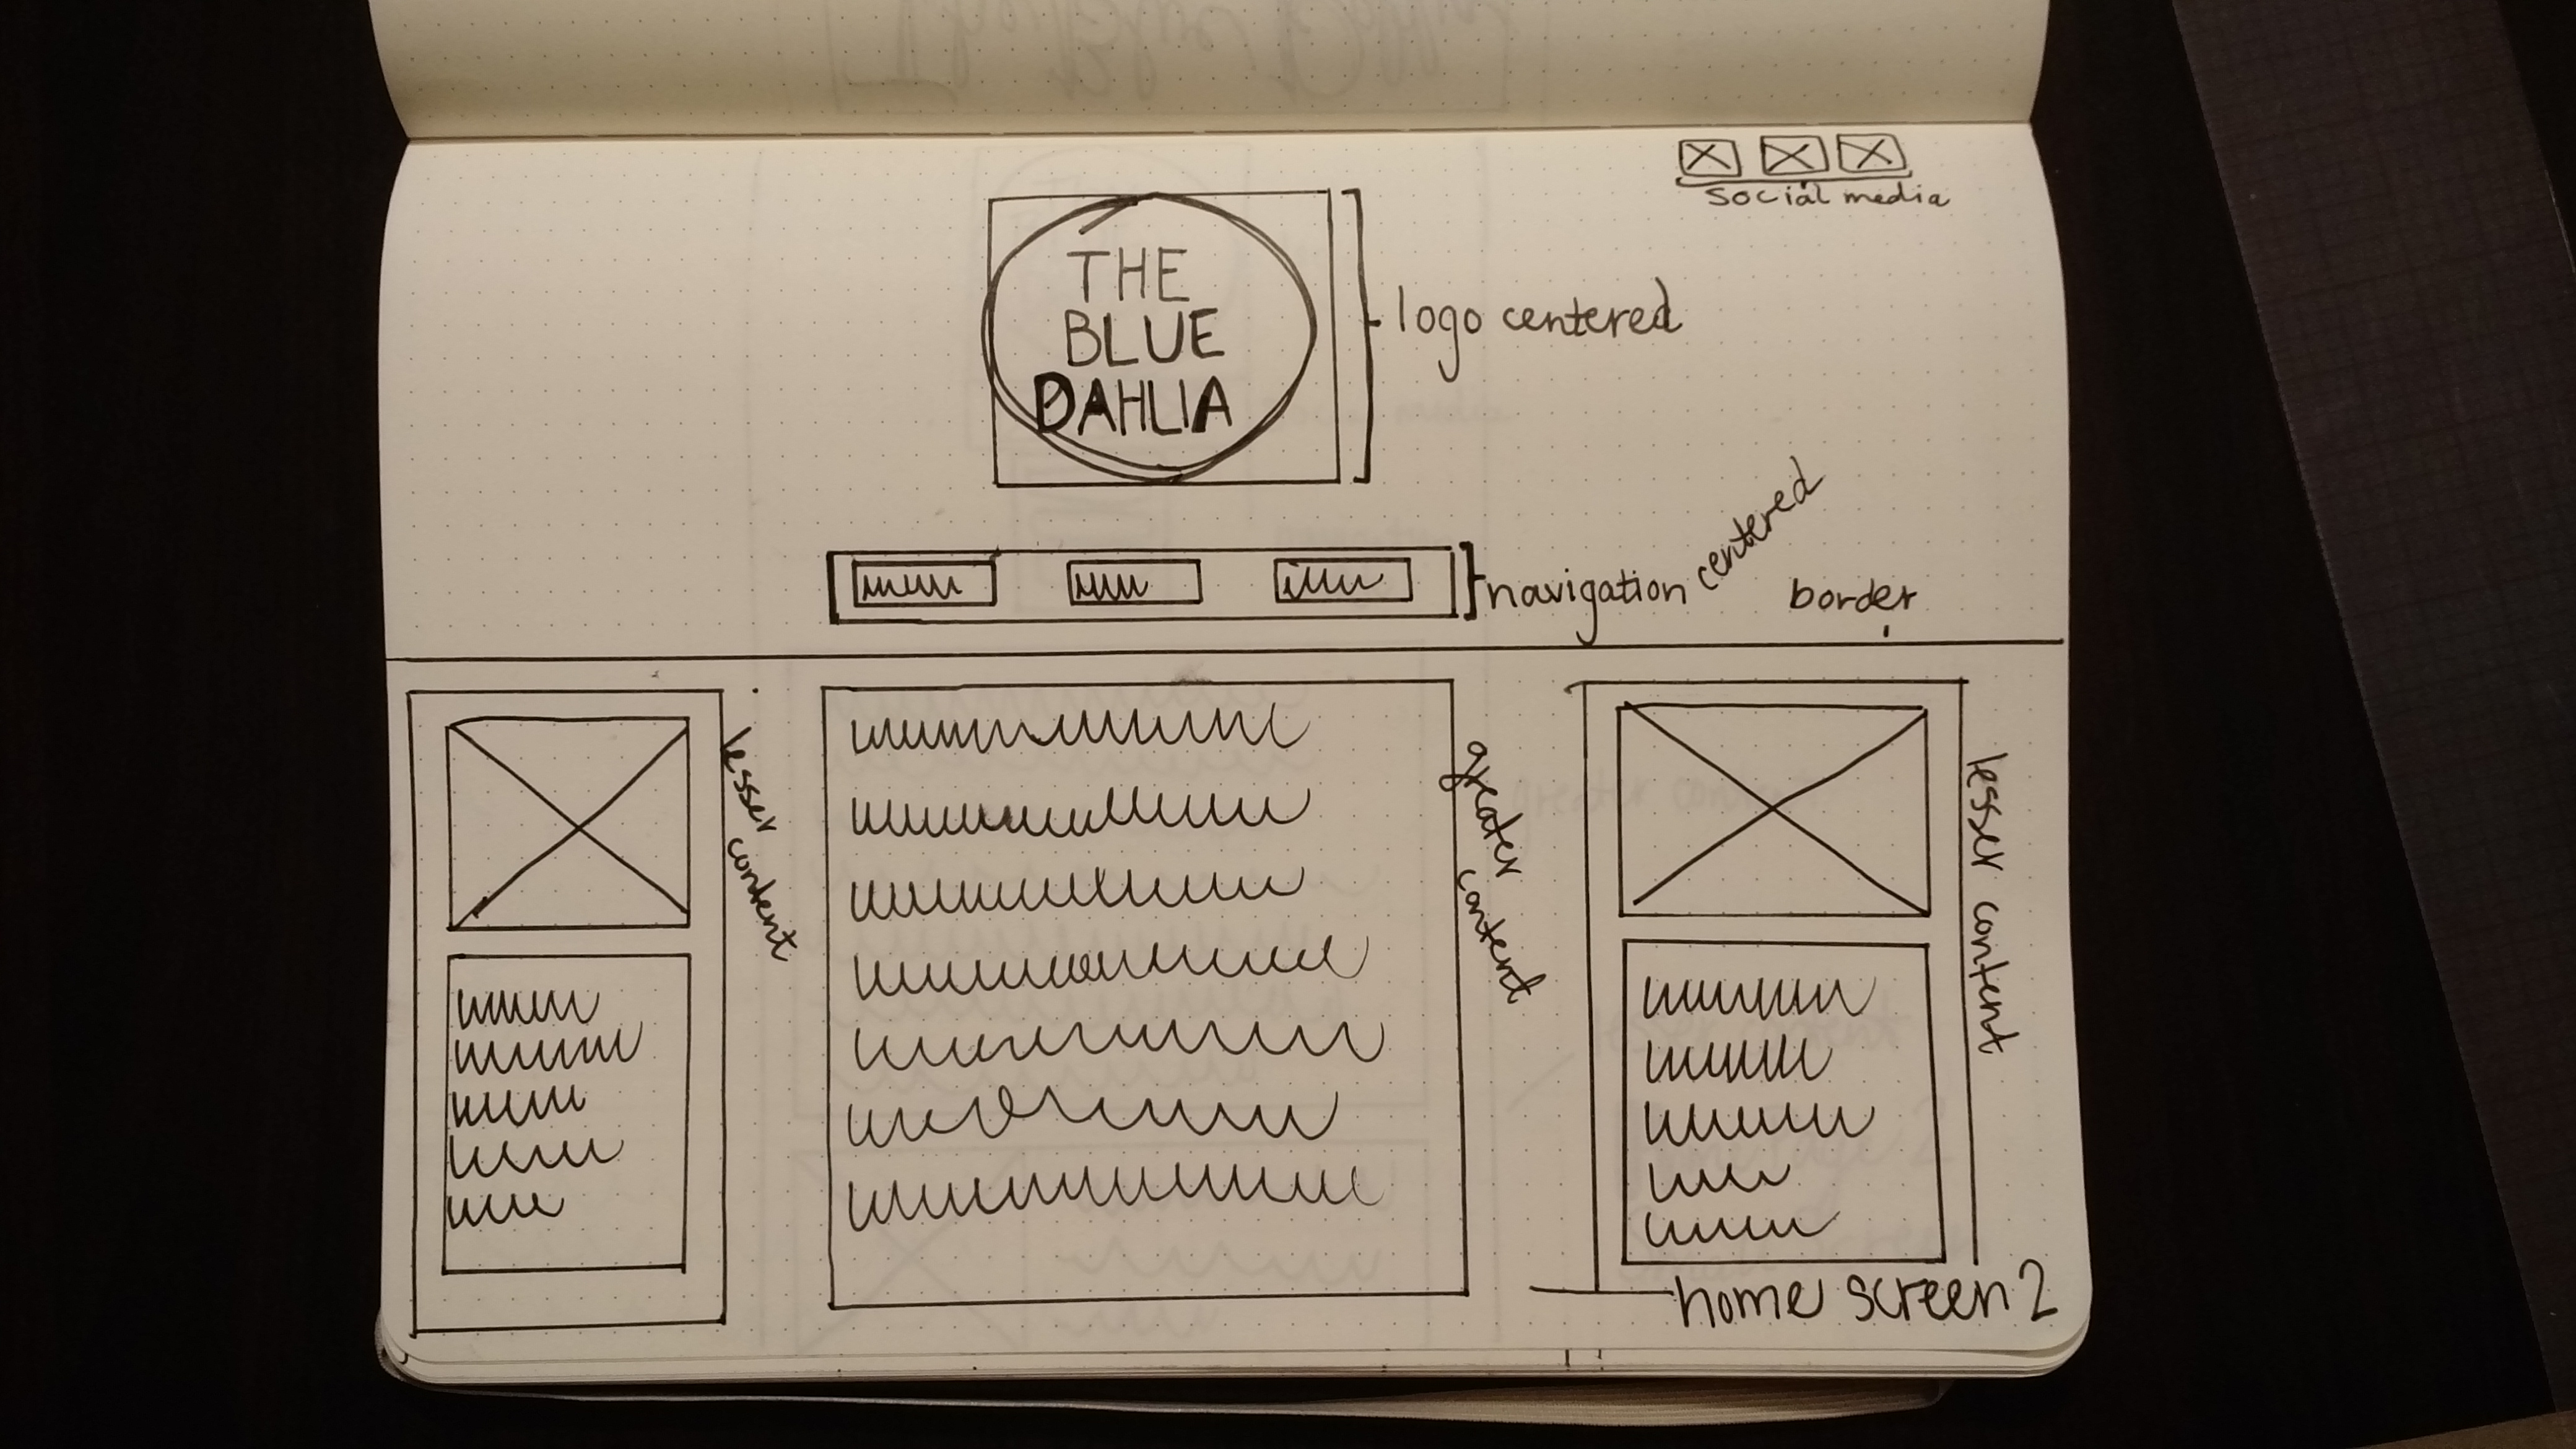 social media
THE
BLUE
DAHLIA
logo centered
navigation centered
border
lesser content
greater content
lesser content
home screen 2